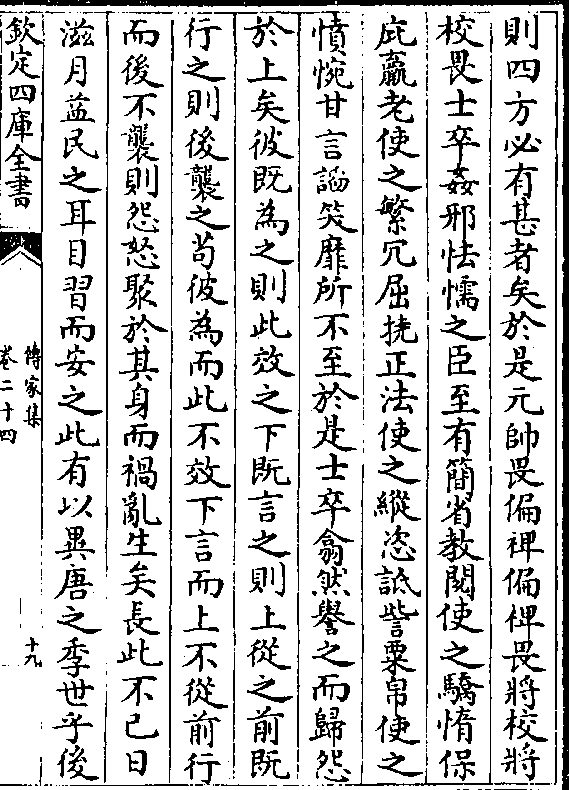 則四方必有甚者矣於是元帥畏偏裨偏裨畏將校將
校畏士卒姦邪怯懦之臣至有簡省教閱使之驕惰保
庇羸老使之繁冗屈撓正法使之縱恣詆訾粟帛使之
憤惋甘言諂笑靡所不至於是士卒翕然譽之而歸怨
於上矣彼既為之則此效之下既言之則上從之前既
行之則後襲之苟彼為而此不效下言而上不從前行
而後不襲則怨怒聚於其身而禍亂生矣長此不已日
滋月益民之耳目習而安之此有以異唐之季世乎後
欽定四庫全書
傳家集
卷二十四
十九